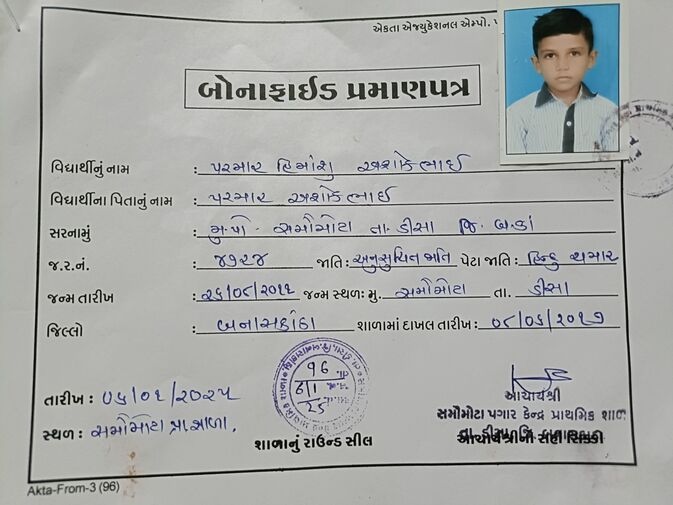 એકતા એજ્યુકેશનલ એમ્પો.
બોનાફાઈડ પ્રમાણપત્ર
વિદ્યાર્થીનું નામ : પરમાર હિમાંશુ અશોકભાઈ
વિદ્યાર્થીના પિતાનું નામ : પરમાર અશોકભાઈ
સરનામું : મુ.પો. સમૌમોટા તા. ડીસા જિ. બ.કાં
જ.ર.નં. : ૪૧૨૪ જાતિ : અનુસુચિત જાતિ પેટા જાતિ : હિન્દુ ચમાર
જન્મ તારીખ : ૨૬/૦૮/૨૦૧૧ જન્મ સ્થળ: મુ. સમૌમોટા તા. ડીસા
જિલ્લો : બનાસકાંઠા શાળામાં દાખલ તારીખ : ૦૮/૦૬/૨૦૧૭
તારીખ : ૦૬/૦૧/૨૦૨૫
સ્થળ : સમૌમોટા પ્રા.શાળા.
શાળાનું રાઉન્ડ સીલ
આચાર્યશ્રી
સમૌમોટા પગાર કેન્દ્ર પ્રાથમિક શાળ
આચાર્યશ્રીની સહી સિક્કો
Akta-From-3 (96)